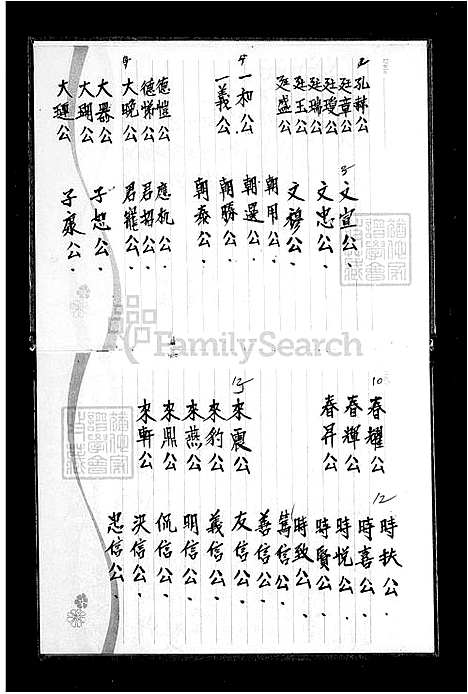 2 孔赫公
廷章公
廷瓊公
廷瑞公
廷玉公
廷盛公
4 一和公
一義公
8 德愷公
德悌公
大晚公
大器公
大瑚公
大璉公
5 文宣公.
文忠公.
文穆公
朝用公
朝選公
朝勝公.
朝泰公.
應机公
君招公.
君寵公.
子恕公.
子康公.
FamilySearch
10 春耀公
春輝公
春昇公
13 來震公
來豹公
來燕公
來鼎公
來軒公
12 時扶公.
時喜公.
時悅公.
時賢公
時致公.
11 篤信公
善信公.
友信公.
義信公
明信公.
侃信公.
洪信公.
忠信公.